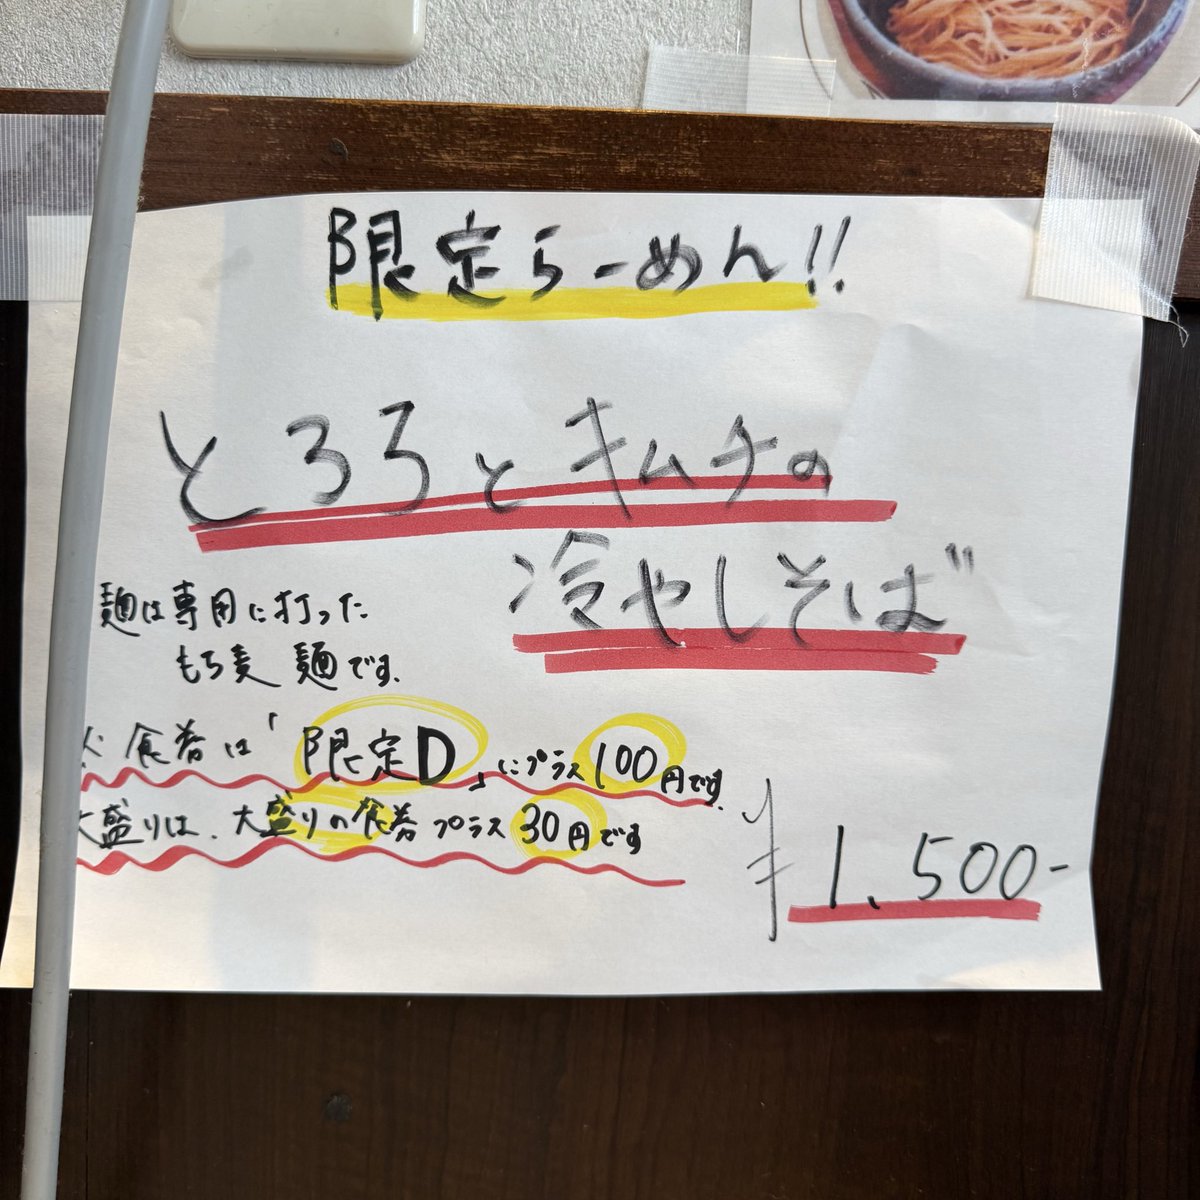 限定らーめん!!
とろろとキムチの
冷やしそば
麺は専用に打った
もち麦麺です。
食券は「限定D」にプラス100円です。
大盛りは、大盛りの食券プラス30円です
¥1,500-